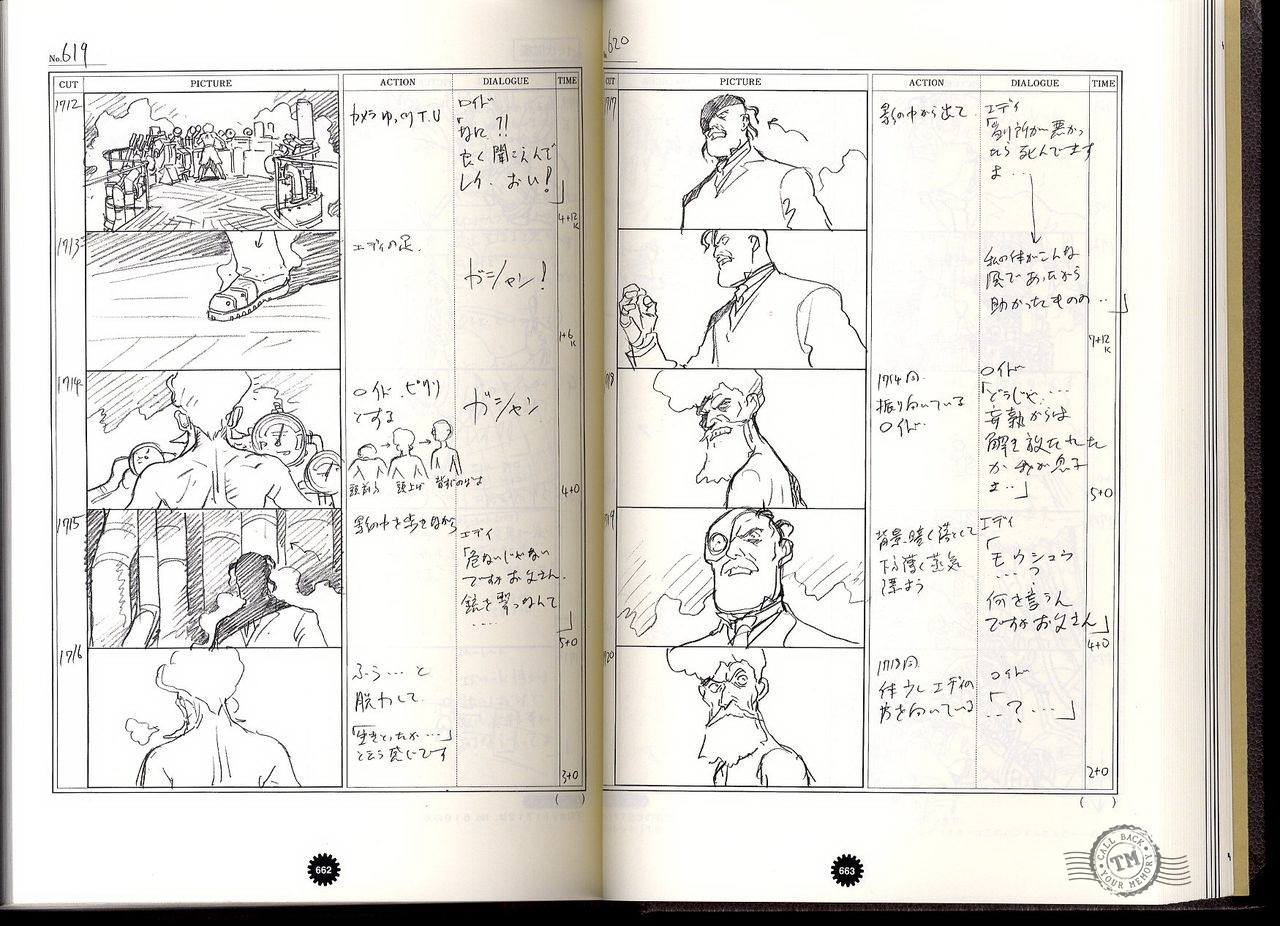 No.619
CUT PICTURE ACTION DIALOGUE TIME
1712
カメラゆっくりT.U
ロイド
「なに?!
良く聞こえんで
レイ、おい!」
4+12
K
1713
エディの足
ガシャン!
1+6
K
1714
ロイド、ピクリ
とする
頭前から
頭上げ
背すじのばす
ガシャン
4+0
1715
影の中を歩きながら
エディ
「危ないじゃない
ですかお父さん、
銃を撃つなんて
....」
5+0
1716
ふう…と
脱力して
「生きとったか…」
と云う感じです
3+0
( )
662
620
CUT PICTURE ACTION DIALOGUE TIME
影の中から出て
エディ
「当り所が悪かっ
たら死んでます
よ...
私の体がこんな
風であったから
助かったものの...」
7+12
K
1714同
振り向いている
ロイド
ロイド
「どうじゃ....
妄執からは
解き放たれた
か 我が息子
よ..」
5+0
背景、暗く落として
下方薄く蒸気
漂よう
エディ
「モウシュウ
....?
何を言うん
ですかお父さん」
4+0
20
1718同
エディの
方を向いている
ロイド
「
..?...」
2+0
( )
663
CALL BACK
TM
YOUR MEMORY